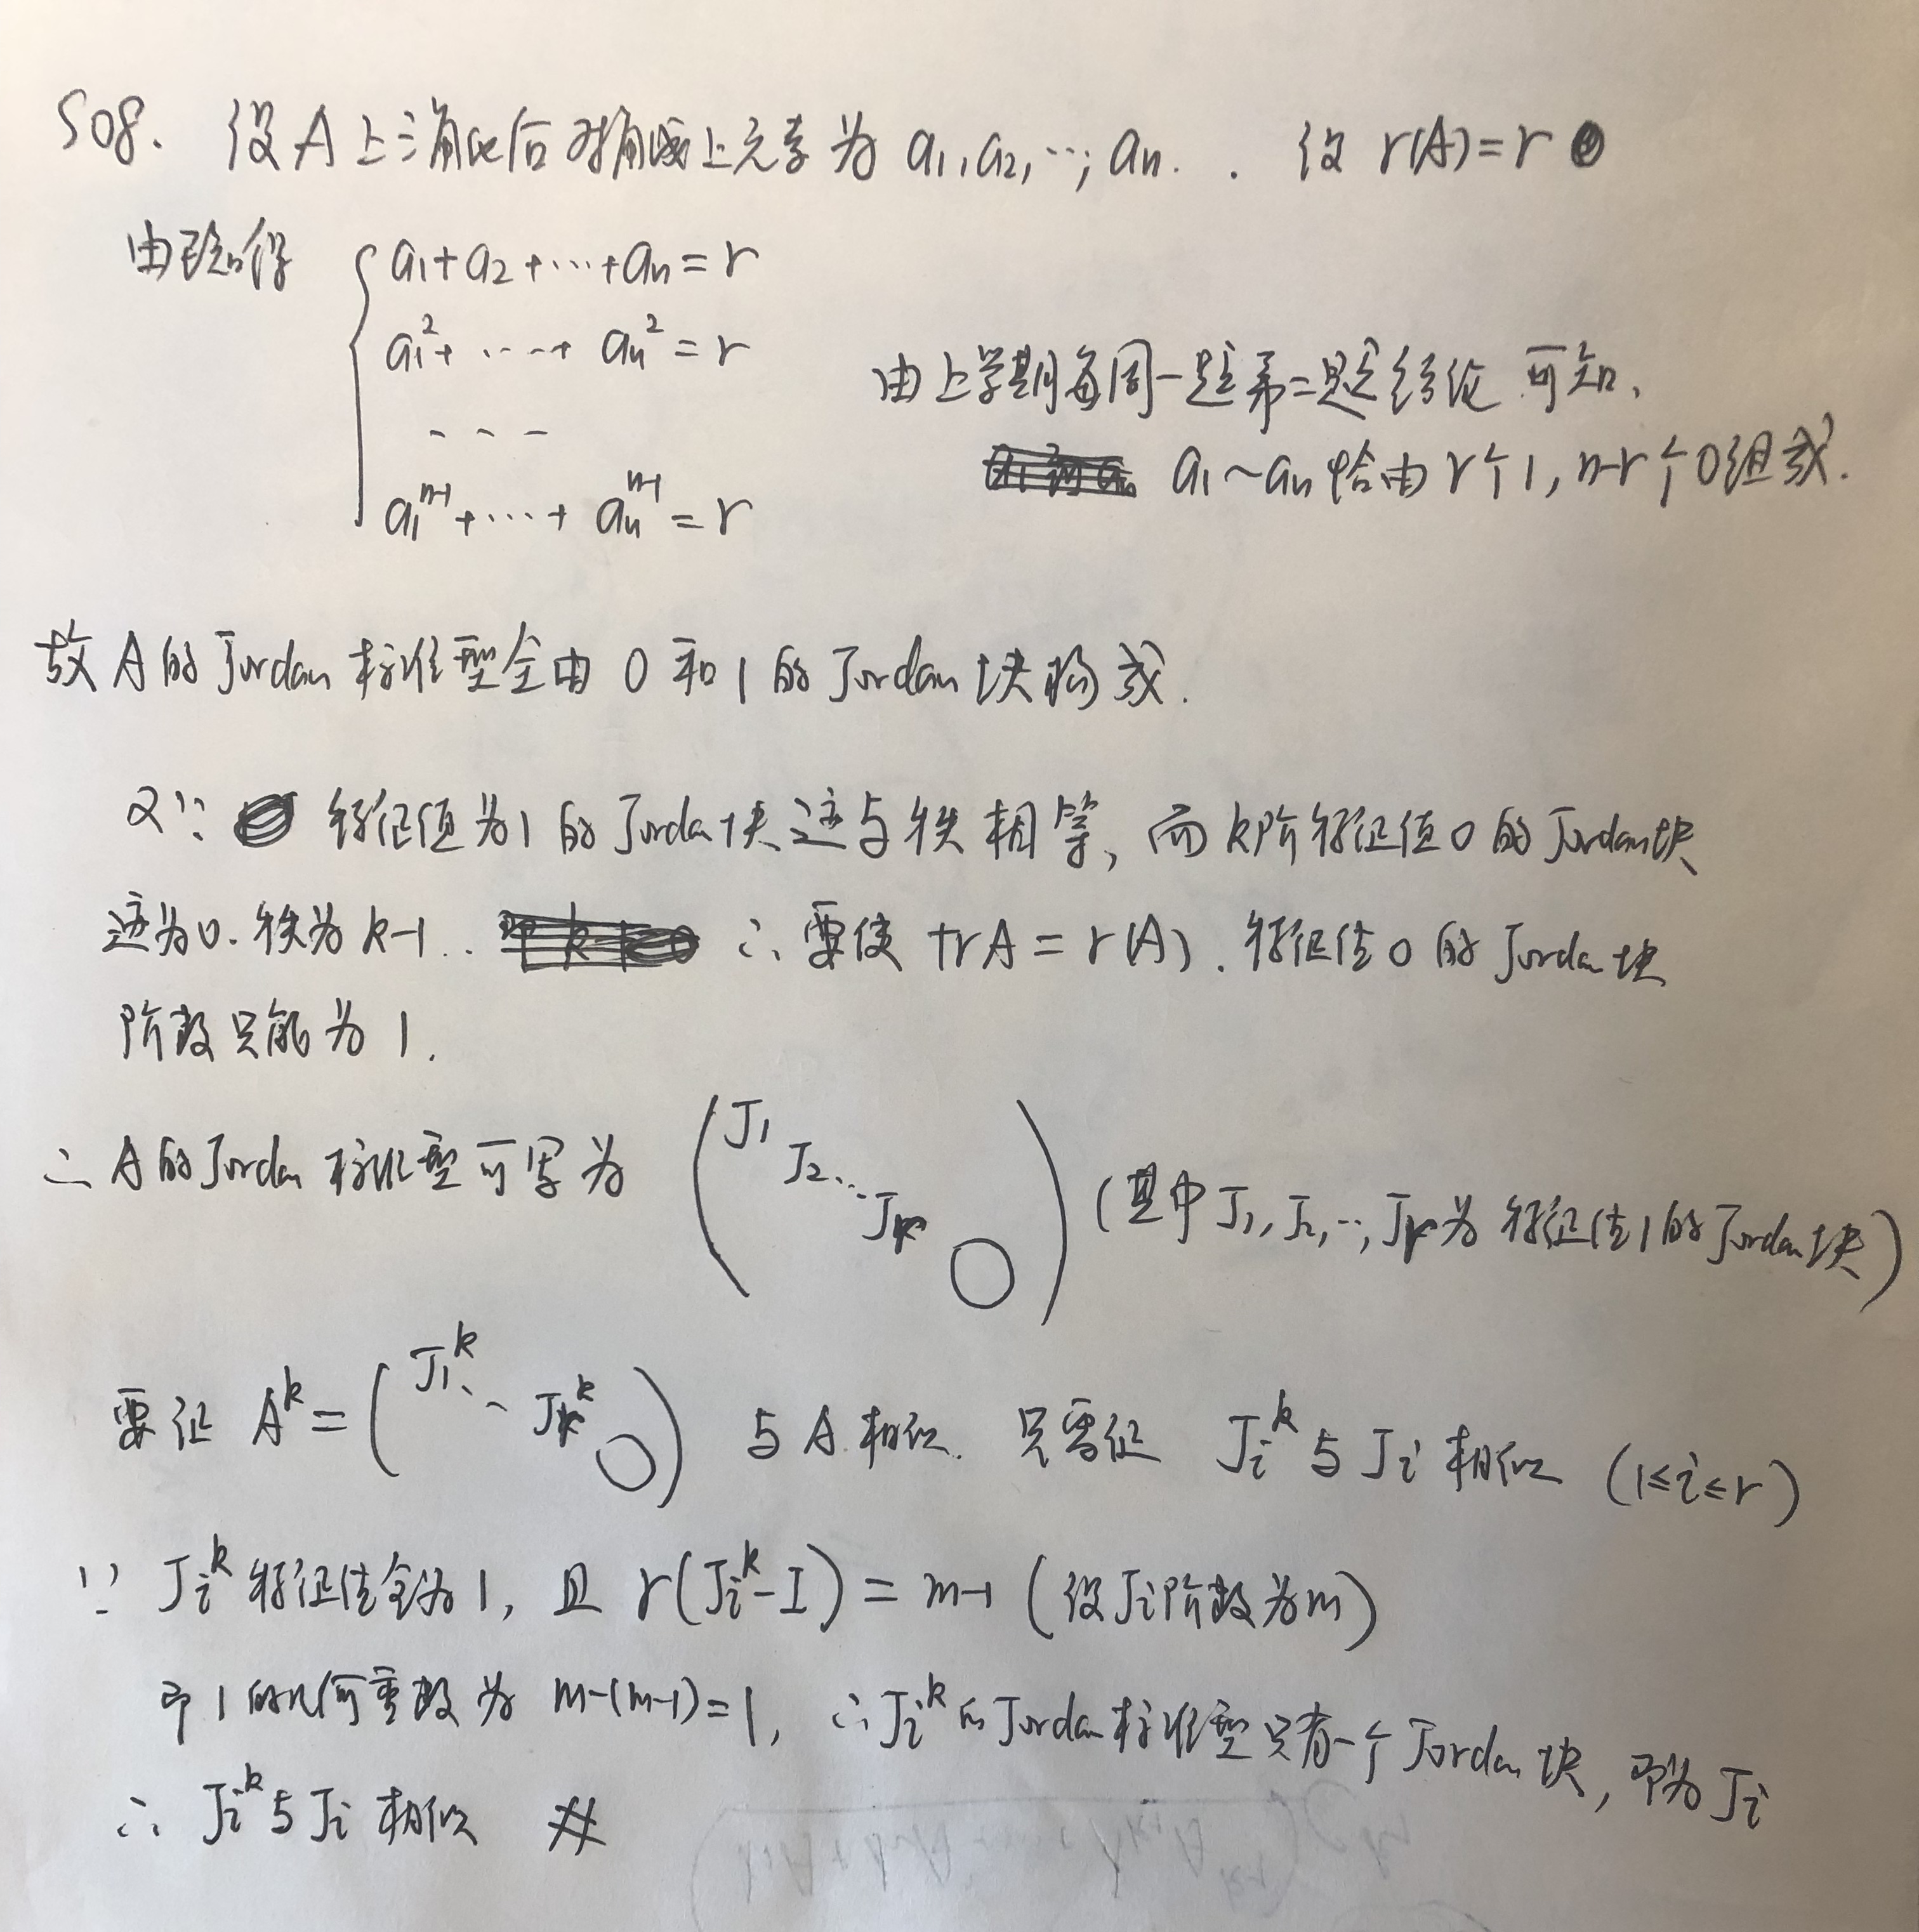 S08. 设A上三角化后对角线上元素为 a₁,a₂,…,aₙ. . 设 r(A)=r
由已知得 { a₁+a₂+…+aₙ=r
a₁²+……+aₙ²=r
- - -
a₁ⁿ⁻¹+…+aₙⁿ⁻¹=r
由上学期每周一题第二题结论可知,
a₁~aₙ恰由r个1,n-r个0组成.
故A的Jordan标准型全由0和1的Jordan块构成.
又∵ 特征值为1的Jordan块迹与秩相等,而k阶特征值0的Jordan块
迹为0.秩为k-1.. ∴要使 trA=r(A).特征值0的Jordan块
阶数只能为1.
∴A的Jordan标准型可写为 (J₁ J₂… Jᵣ O) (其中J₁,J₂,…,Jᵣ为特征值1的Jordan块)
要证 Aᵏ=(J₁ᵏ … Jᵣᵏ O) 与A相似. 只需证 Jᵢᵏ与Jᵢ相似 (1≤i≤r)
∵ Jᵢᵏ特征值全为1,且 r(Jᵢᵏ-I)=m-1 (设Jᵢ阶数为m)
即1的几何重数为 m-(m-1)=1, ∴Jᵢᵏ的Jordan标准型只有一个Jordan块,即为Jᵢ
∴ Jᵢᵏ与Jᵢ相似 #